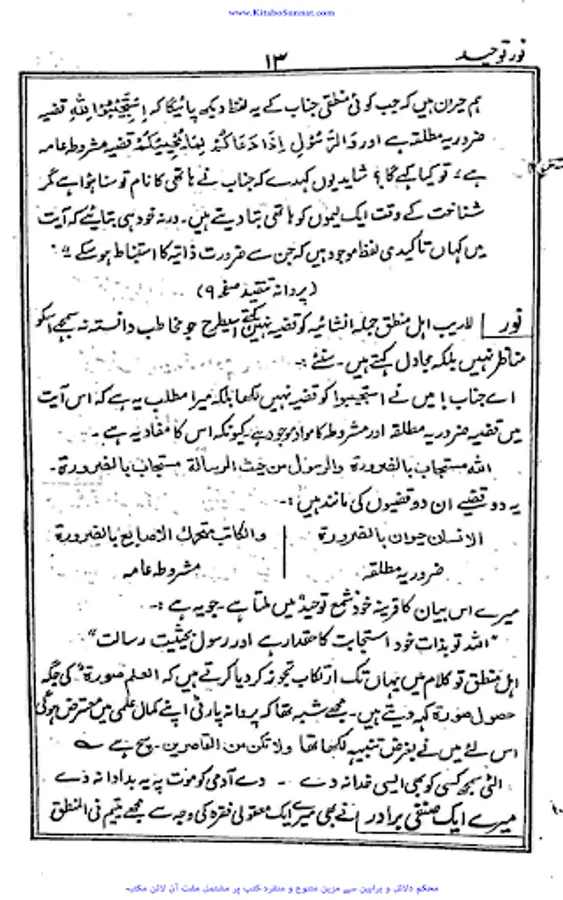 www.KitaboSunnat.com
نور توحید
۱۳
ہم حیران ہیں کہ جب کوئی منطقی جناب کے یہ لفظ دیکھ پائیگا کہ اِسْتَجِیْبُوْا لِلّٰہِ قضیہ
ضروریہ مطلقہ ہے اور وَالرَّسُوْلِ اِذَا دَعَاکُمْ لِمَا یُحْیِیْکُمْ قضیہ مشروطہ عامہ
ہے، تو کیا کہے گا؟ شاید یوں کہدے کہ جناب نے ہاتھی کا نام تو سنا ہوا ہے مگر
شناخت کے وقت ایک لیموں کو ہاتھی بتا دیتے ہیں۔ ورنہ خود ہی بتائیے کہ آیت
میں کہاں تاکیدی لفظ موجود ہیں کہ جن سے ضرورت ذاتیہ کا استنباط ہو سکے"
(پروانہ تنقید صفحہ ۹)
نور | لاریب اہل منطق جملہ انشائیہ کو قضیہ نہیں کہتے اسیطرح جو مخاطب دانستہ نہ سمجھے اسکو
مناظر نہیں بلکہ مجادل کہتے ہیں۔ سنئے:۔
اے جناب! میں نے استجیبوا کو قضیہ نہیں لکھا بلکہ میرا مطلب یہ ہے کہ اس آیت
میں قضیہ ضروریہ مطلقہ اور مشروطہ کا مواد موجود ہے۔ کیونکہ اس کا مفاد یہ ہے۔
اللہ مستجاب بالضرورة والرسول من حیث الرسالة مستجاب بالضرورة۔
یہ دو قضیے ان دو قضیوں کی مانند ہیں:۔
الانسان حیوان بالضرورة | والکاتب متحرك الاصابع بالضرورة
ضروریہ مطلقہ | مشروطہ عامہ
میرے اس بیان کا قرینہ خود شمع توحید میں ملتا ہے۔ جو یہ ہے:۔
"اللہ تو بذات خود استجابت کا حقدار ہے اور رسول بحیثیت رسالت"
اہل منطق تو کلام میں یہاں تک ارتکاب تجوز کر دیا کرتے ہیں کہ العلم صورة کی جگہ
حصول صورة کہہ دیتے ہیں۔ مجھے شبہ تھا کہ پروانہ پارٹی اپنے کمال علمی میں معترض ہوگی
اس لئے میں نے بغرض تنبیہ لکھا تھا ولا تکن من القاصرین۔ سچ ہے ؎
الٹی سمجھ کسی کو بھی ایسی خدا نہ دے ۔ دے آدمی کو موت پر یہ بد ادا نہ دے
میرے ایک صنفی برادر | نے بھی میرے ایک معقولی فقرہ کی وجہ سے مجھے یتیم فی المنطق
محکم دلائل و براہین سے مزین متنوع و منفرد کتب پر مشتمل مفت آن لائن مکتبہ